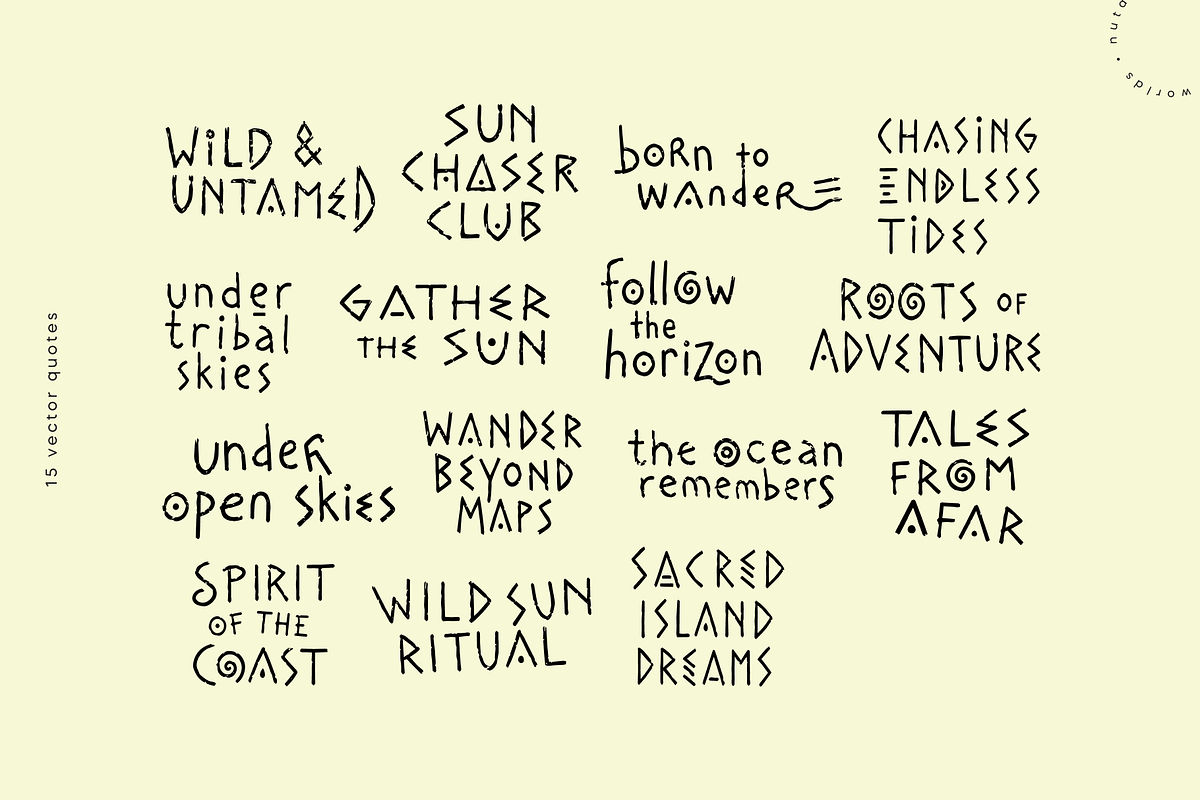 WiLD &
UNTAMED
SUN
CHASER
CLUB
born to
wandeR
CHASiNG
ENDLESS
TiDES
under
tribal
skies
GATHER
THE SUN
follow
the
horiZon
ROOTS OF
ADVENTURE
under
open skies
WANDER
BEYOND
MAPS
the ocean
remembers
TALES
FROM
AFAR
SPIRIT
OF THE
COAST
WILD SUN
RITUAL
SACRED
ISLAND
DREAMS
15 vector quotes
worlds